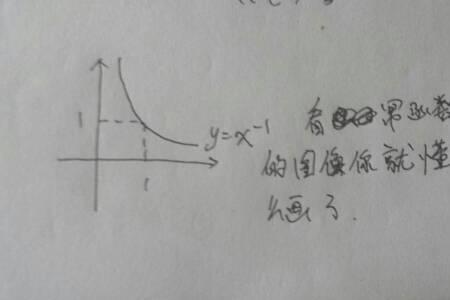 1
y=x⁻¹
1
看 幂函数
的图像你就懂
么画了.